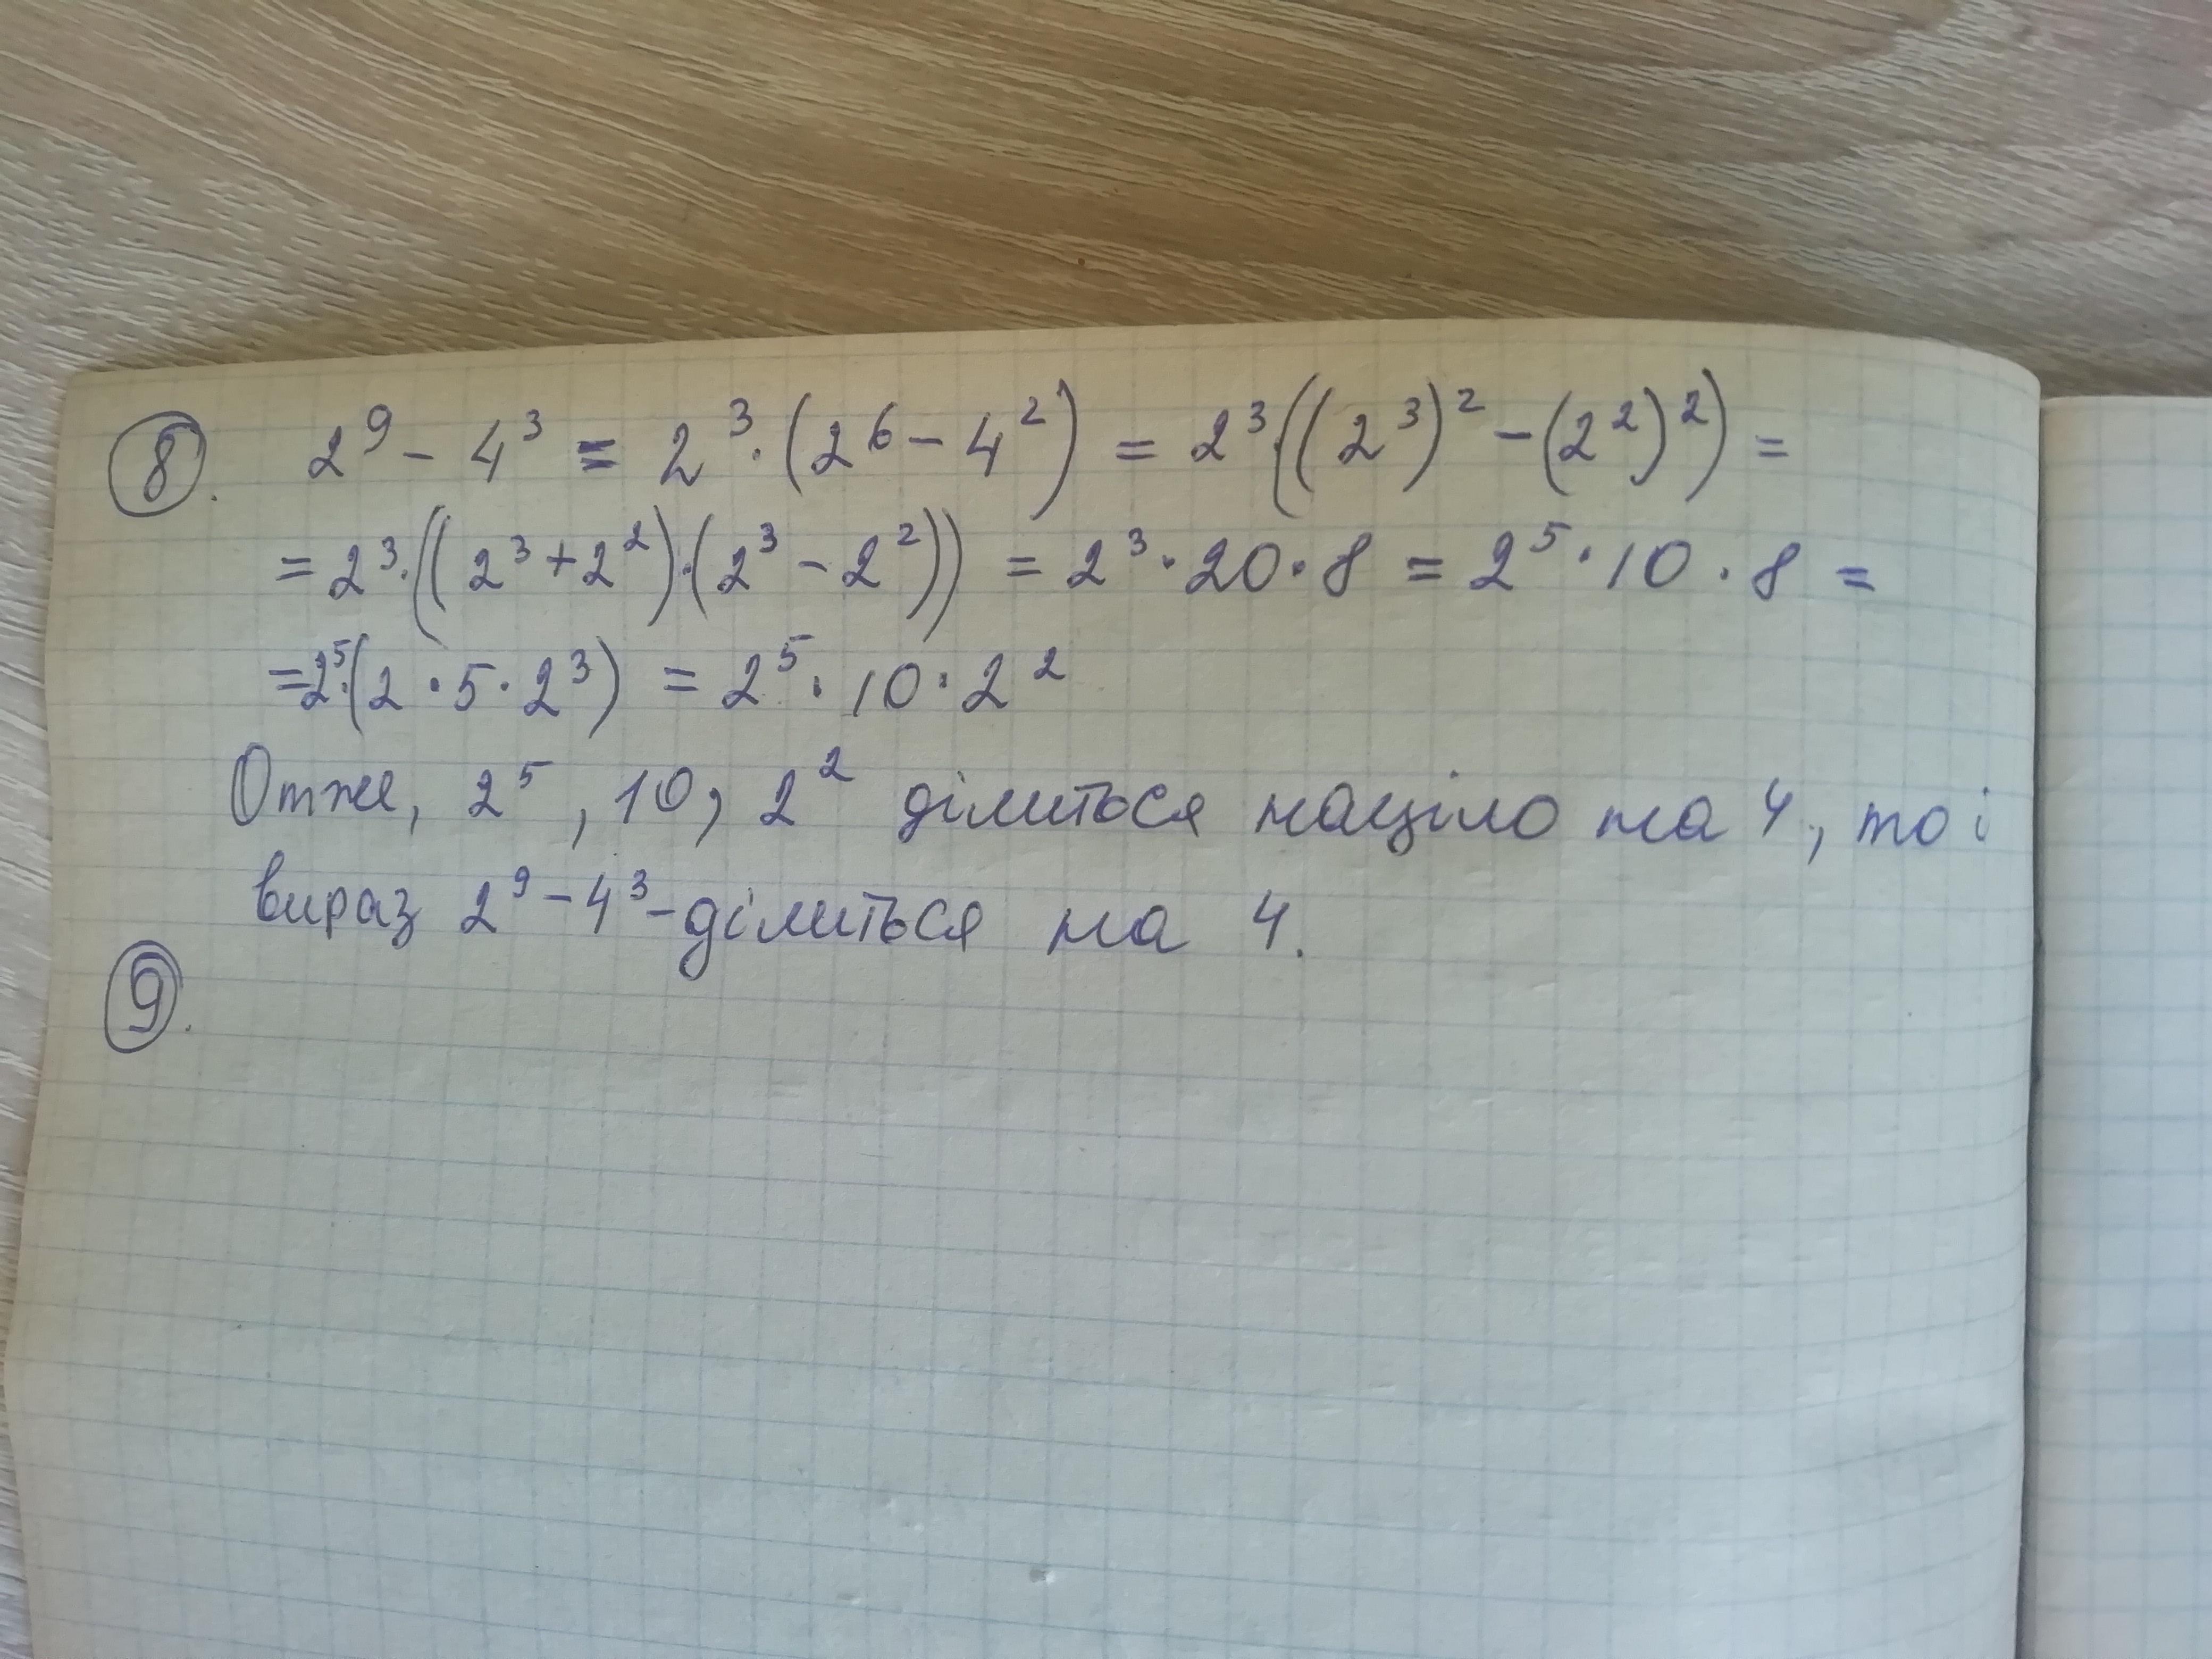 8. 2⁹ - 4³ = 2³ · (2⁶ - 4²) = 2³ · ((2³)² - (2²)²) =
= 2³ · ((2³ + 2²) · (2³ - 2²)) = 2³ · 20 · 8 = 2⁵ · 10 · 8 =
= 2⁵ · (2 · 5 · 2³) = 2⁵ · 10 · 2²
Отже, 2⁵, 10, 2² ділиться націло на 4, то і
вираз 2⁹ - 4³ - ділиться на 4.
9.